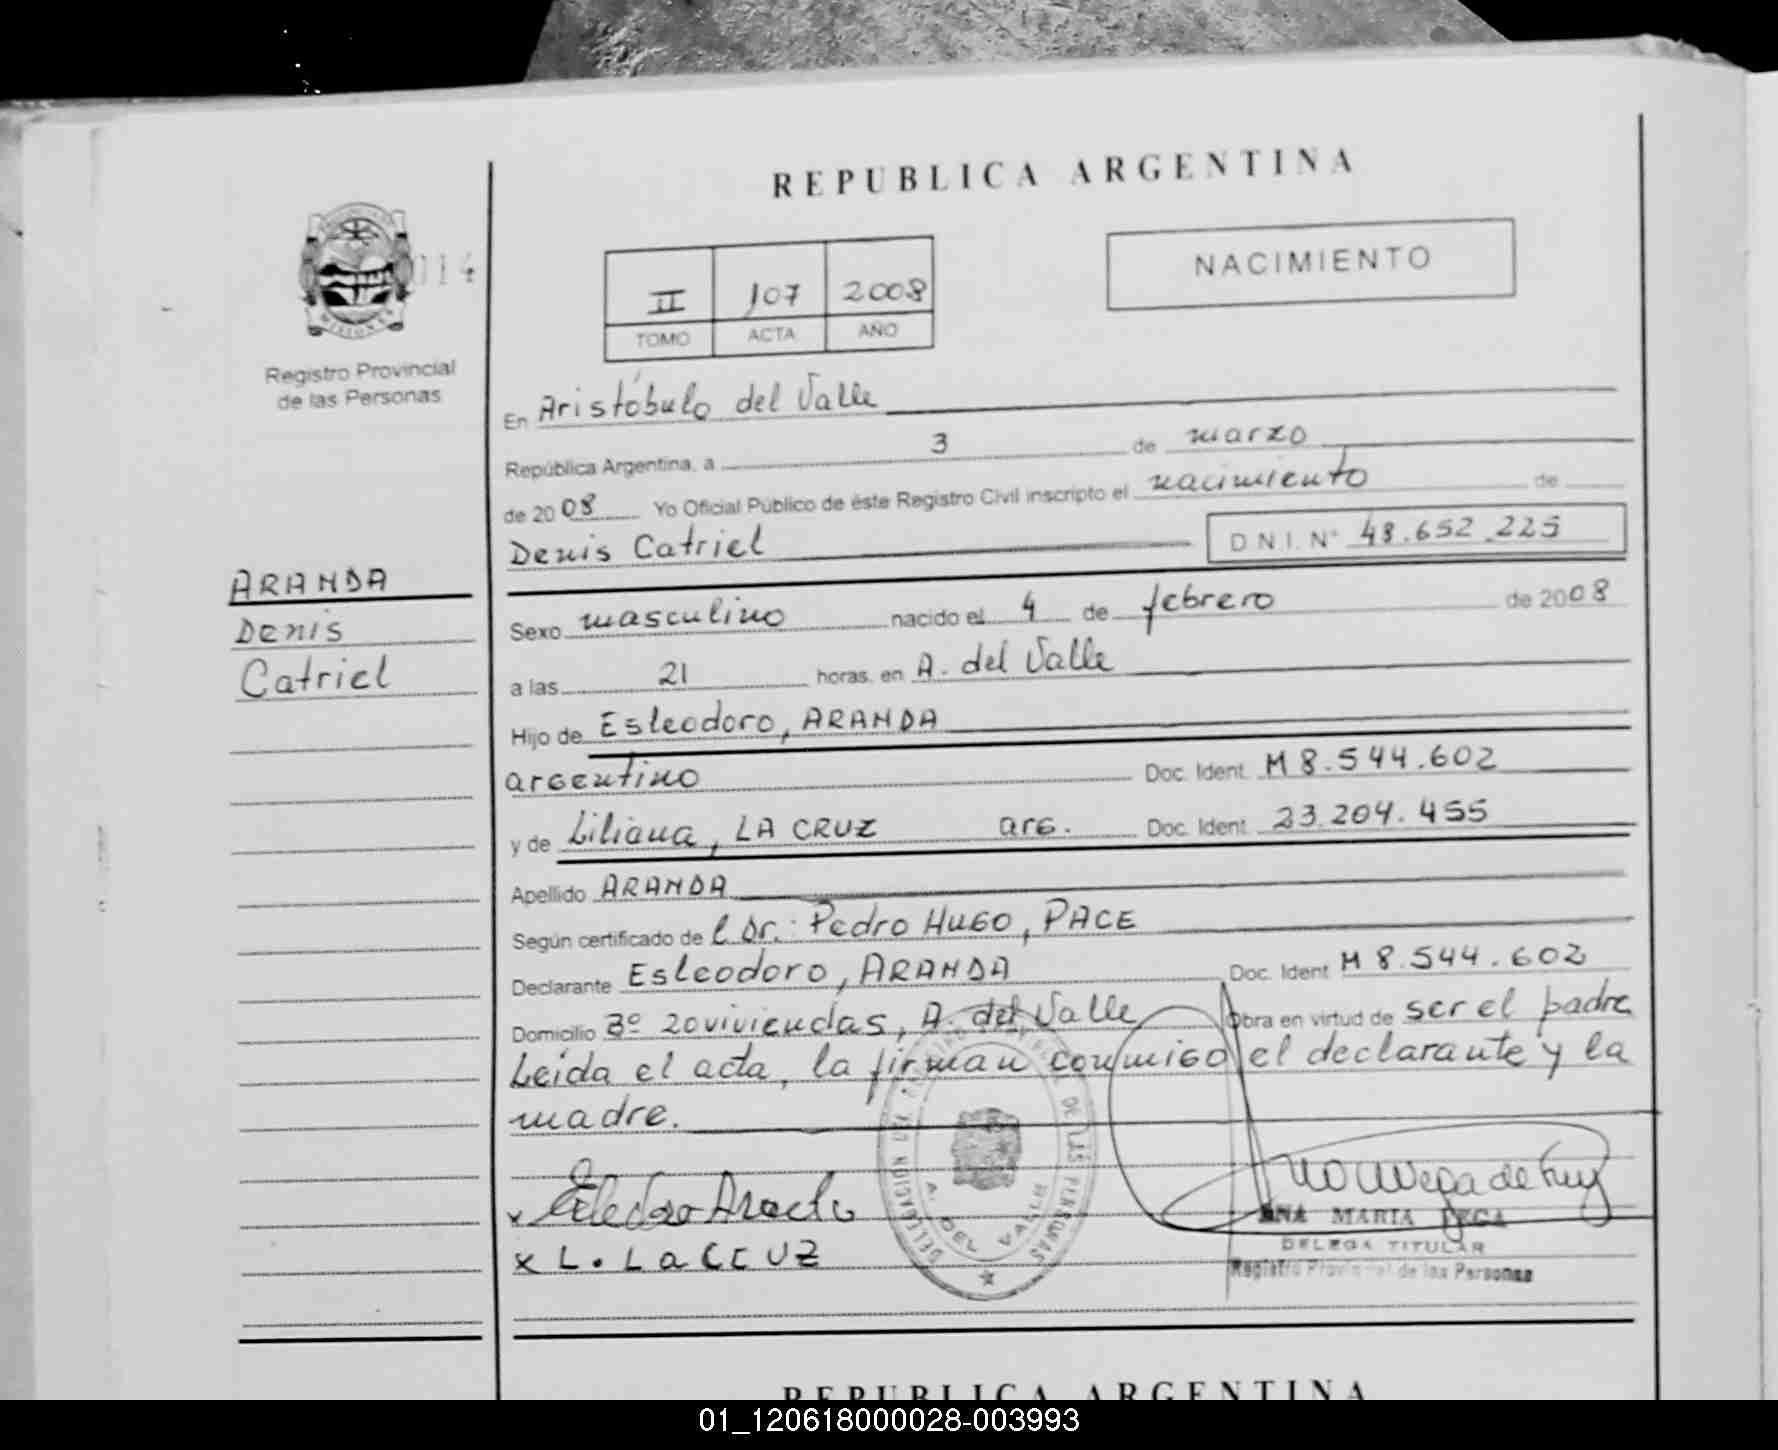 REPUBLICA ARGENTINA
014
MISIONES
Registro Provincial
de las Personas
II 107 2008
TOMO ACTA AÑO
NACIMIENTO
En Aristóbulo del Valle
República Argentina, a 3 de marzo
de 2008 Yo Oficial Público de éste Registro Civil inscripto el nacimiento de
Denis Catriel D.N.I. Nº 48.652.225
ARANDA
Denis
Catriel
Sexo masculino nacido el 4 de febrero de 2008
a las 21 horas. en A. del Valle
Hijo de Esleodoro, ARANDA
argentino Doc. Ident. M 8.544.602
y de Liliana, LA CRUZ arg. Doc. Ident. 23.204.455
Apellido ARANDA
Según certificado de l Dr.: Pedro Hugo, PACE
Declarante Esleodoro, ARANDA Doc. Ident. M 8.544.602
Domicilio Bº 20 viviendas, A. del Valle Obra en virtud de ser el padre
Leída el acta, la firman conmigo el declarante y la
madre.
x
x L. LaCruz
DELEGACION A. DEL VALLE DE LAS PERSONAS
ANA MARIA VEGA
DELEGA TITULAR
Registro Provincial de las Personas
REPUBLICA ARGENTINA
01_120618000028-003993